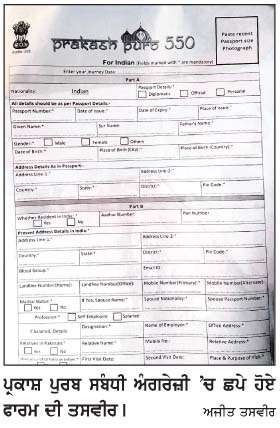 prakash purb 550
Paste recent
Passport size
Photograph
For Indian (Fields marked with * are mandatory)
Enter your Journey Date:
Part A
Nationality: Indian Passport Details:*
Diplomatic Official Personal
All details should be as per Passport Details:-
Passport Number:* Date of Issue:* Date of Expiry:* Place of Issue:*
Given Name:* Sur Name Father's Name:*
Gender:* Male Female Others
Date of Birth:* Place of Birth(City):* Place of Birth (Country):*
Address Details As in Passport:-
Address Line:1* Address Line:2:*
Country:* State:* District:* Pin Code:*
Part B
Whether Resident in India:* Aadhar Number Pan Number
Yes No
Present Address Details in India:*
Address Line:1* Address Line:2:*
Country:* State:* District:* Pin Code:*
Blood Group: Email ID:
Landline Number(Home): Landline Number(Office): Mobile Number(Primary):* Mobile Number(Alternative):
Marital Status:* If Yes, Spouse Name:* Spouse Nationality:* Spouse Passport Number:*
Yes No
Profession:* Self Employed Salaried
If Salaried, Details Designation:* Name of Employer:* Office Address:*
Relatives in Pakistan:* Name:* Mobile No: Relative Address:*
Yes No
First Visit Date: Second Visit Date: Place & Purpose of Visit:*
ਪ੍ਰਕਾਸ਼ ਪੁਰਬ ਸਬੰਧੀ ਅੰਗਰੇਜ਼ੀ 'ਚ ਛਪੇ ਹੋਏ
ਫਾਰਮ ਦੀ ਤਸਵੀਰ। ਅਜੀਤ ਤਸਵੀਰ